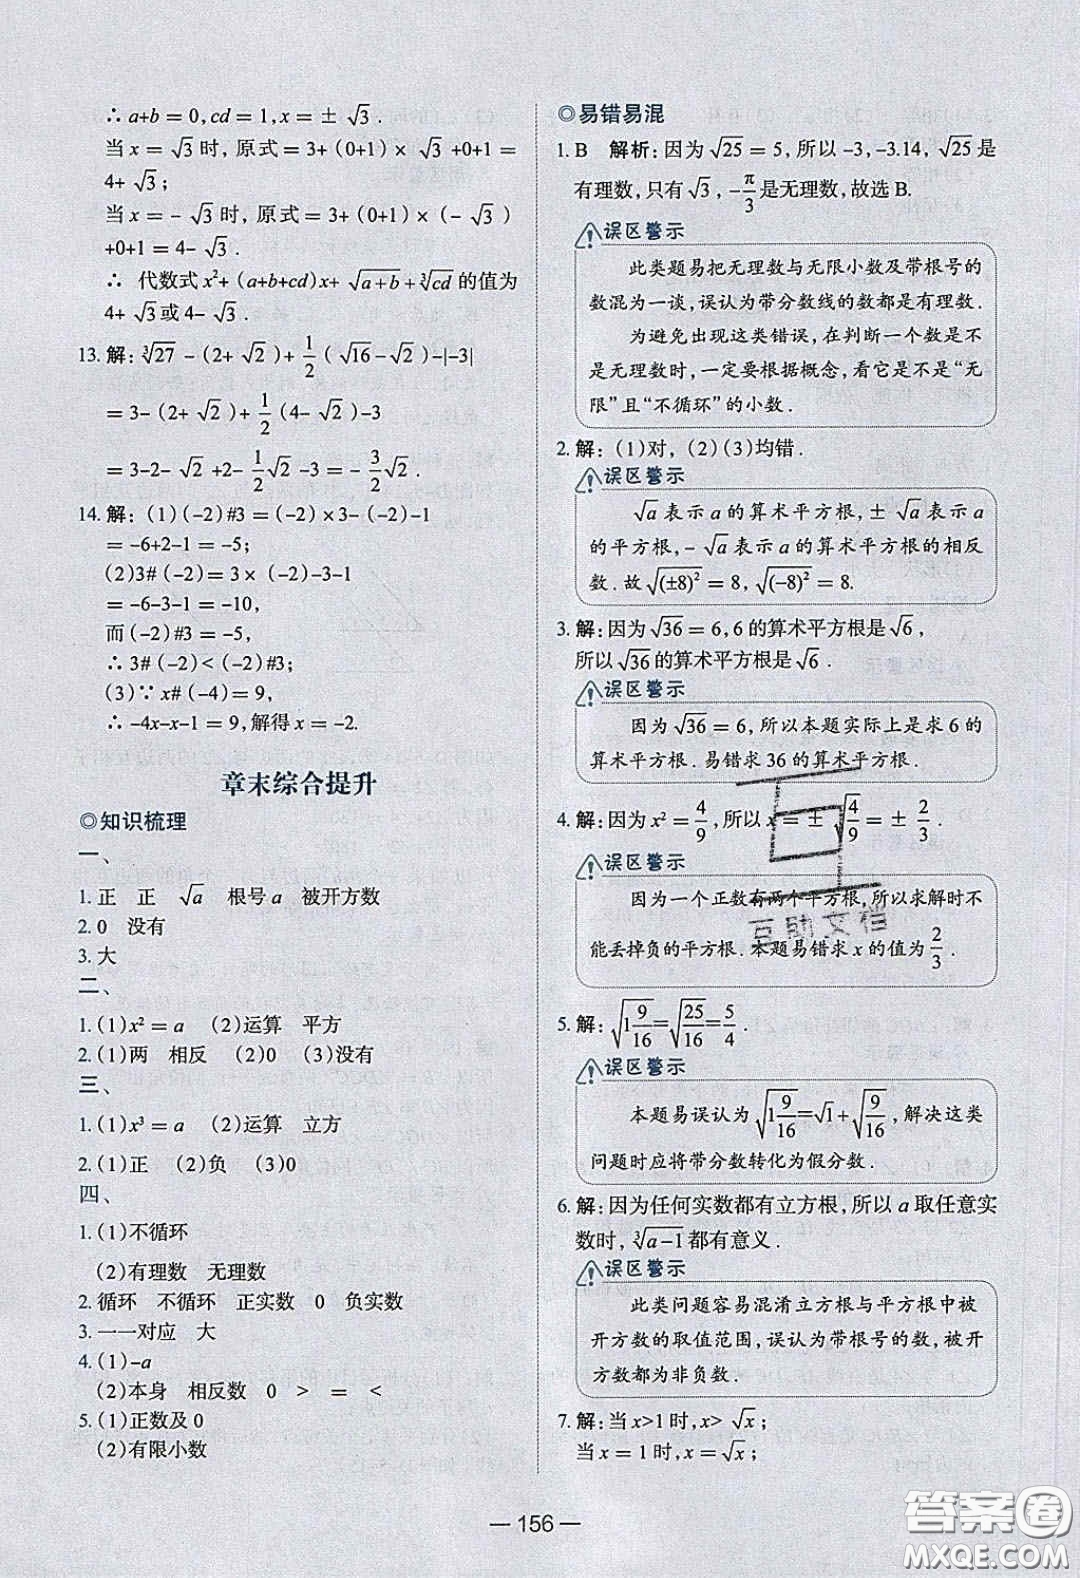 ∴ a+b=0,cd=1,x=±√3.
当x=√3时,原式=3+(0+1)×√3+0+1=
4+√3;
当x=-√3时,原式=3+(0+1)×(-√3)
+0+1=4-√3.
∴ 代数式x²+(a+b+cd)x+√(a+b)+∛(cd)的值为
4+√3或4-√3.
13.解:∛27-(2+√2)+1/2(√16-√2)-|-3|
=3-(2+√2)+1/2(4-√2)-3
=3-2-√2+2-1/2√2-3=-3/2√2.
14.解:(1)(-2)#3=(-2)×3-(-2)-1
=-6+2-1=-5;
(2)3#(-2)=3×(-2)-3-1
=-6-3-1=-10,
而(-2)#3=-5,
∴3#(-2)<(-2)#3;
(3)∵x#(-4)=9,
∴-4x-x-1=9,解得x=-2.
章末综合提升
◎知识梳理
一、
1.正 正 √a 根号a 被开方数
2.0 没有
3.大
二、
1.(1)x²=a (2)运算 平方
2.(1)两 相反 (2)0 (3)没有
三、
1.(1)x³=a (2)运算 立方
2.(1)正 (2)负 (3)0
四、
1.(1)不循环
(2)有理数 无理数
2.循环 不循环 正实数 0 负实数
3.一一对应 大
4.(1)-a
(2)本身 相反数 0 > = <
5.(1)正数及0
(2)有限小数
◎易错易混
1.B 解析:因为√25=5,所以-3,-3.14,√25是
有理数,只有√3,-π/3是无理数,故选B.
误区警示
此类题易把无理数与无限小数及带根号的
数混为一谈,误认为带分数线的数都是有理数.
为避免出现这类错误,在判断一个数是不
是无理数时,一定要根据概念,看它是不是“无
限”且“不循环”的小数.
2.解:(1)对,(2)(3)均错.
误区警示
√a表示a的算术平方根,±√a表示a
的平方根,-√a表示a的算术平方根的相反
数.故√(±8)²=8,√(-8)²=8.
3.解:因为√36=6,6的算术平方根是√6,
所以√36的算术平方根是√6.
误区警示
因为√36=6,所以本题实际上是求6的
算术平方根.易错求36的算术平方根.
4.解:因为x²=4/9,所以x=±√(4/9)=±2/3.
误区警示
因为一个正数有两个平方根,所以求解时不
能丢掉负的平方根.本题易错求x的值为2/3.
5.解:√(1 9/16)=√(25/16)=5/4.
误区警示
本题易误认为√(1 9/16)=√1+√(9/16),解决这类
问题时应将带分数转化为假分数.
6.解:因为任何实数都有立方根,所以a取任意实
数时,∛(a-1)都有意义.
误区警示
此类问题容易混淆立方根与平方根中被
开方数的取值范围,误认为带根号的数,被开
方数都为非负数.
7.解:当x>1时,x>√x;
当x=1时,x=√x;
互助文档
— 156 —
答案圈
MXQE.COM